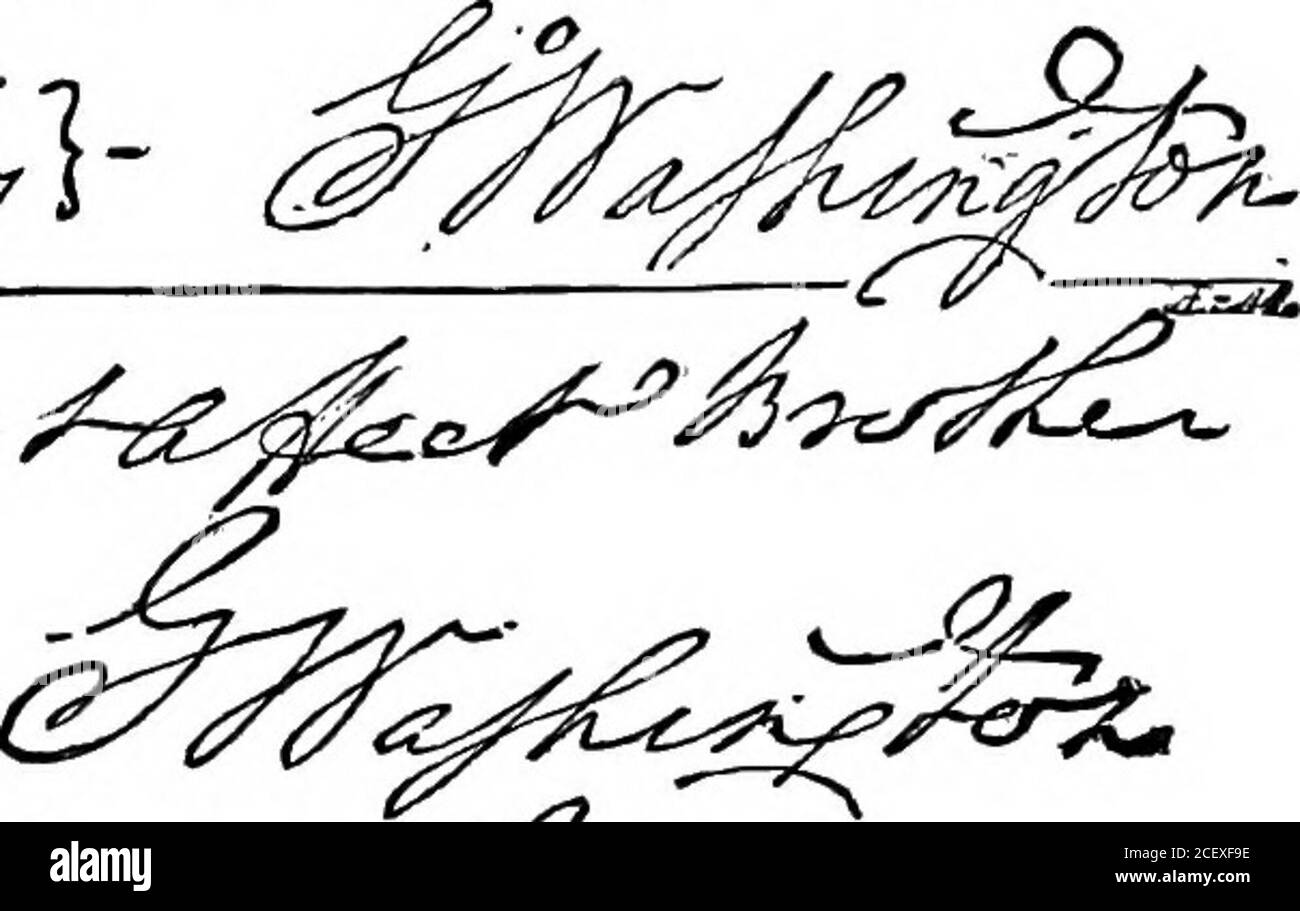 }- Go Washington
& affecto Brother
G Washington
alamy
Image ID: 2CEXF9E
www.alamy.com